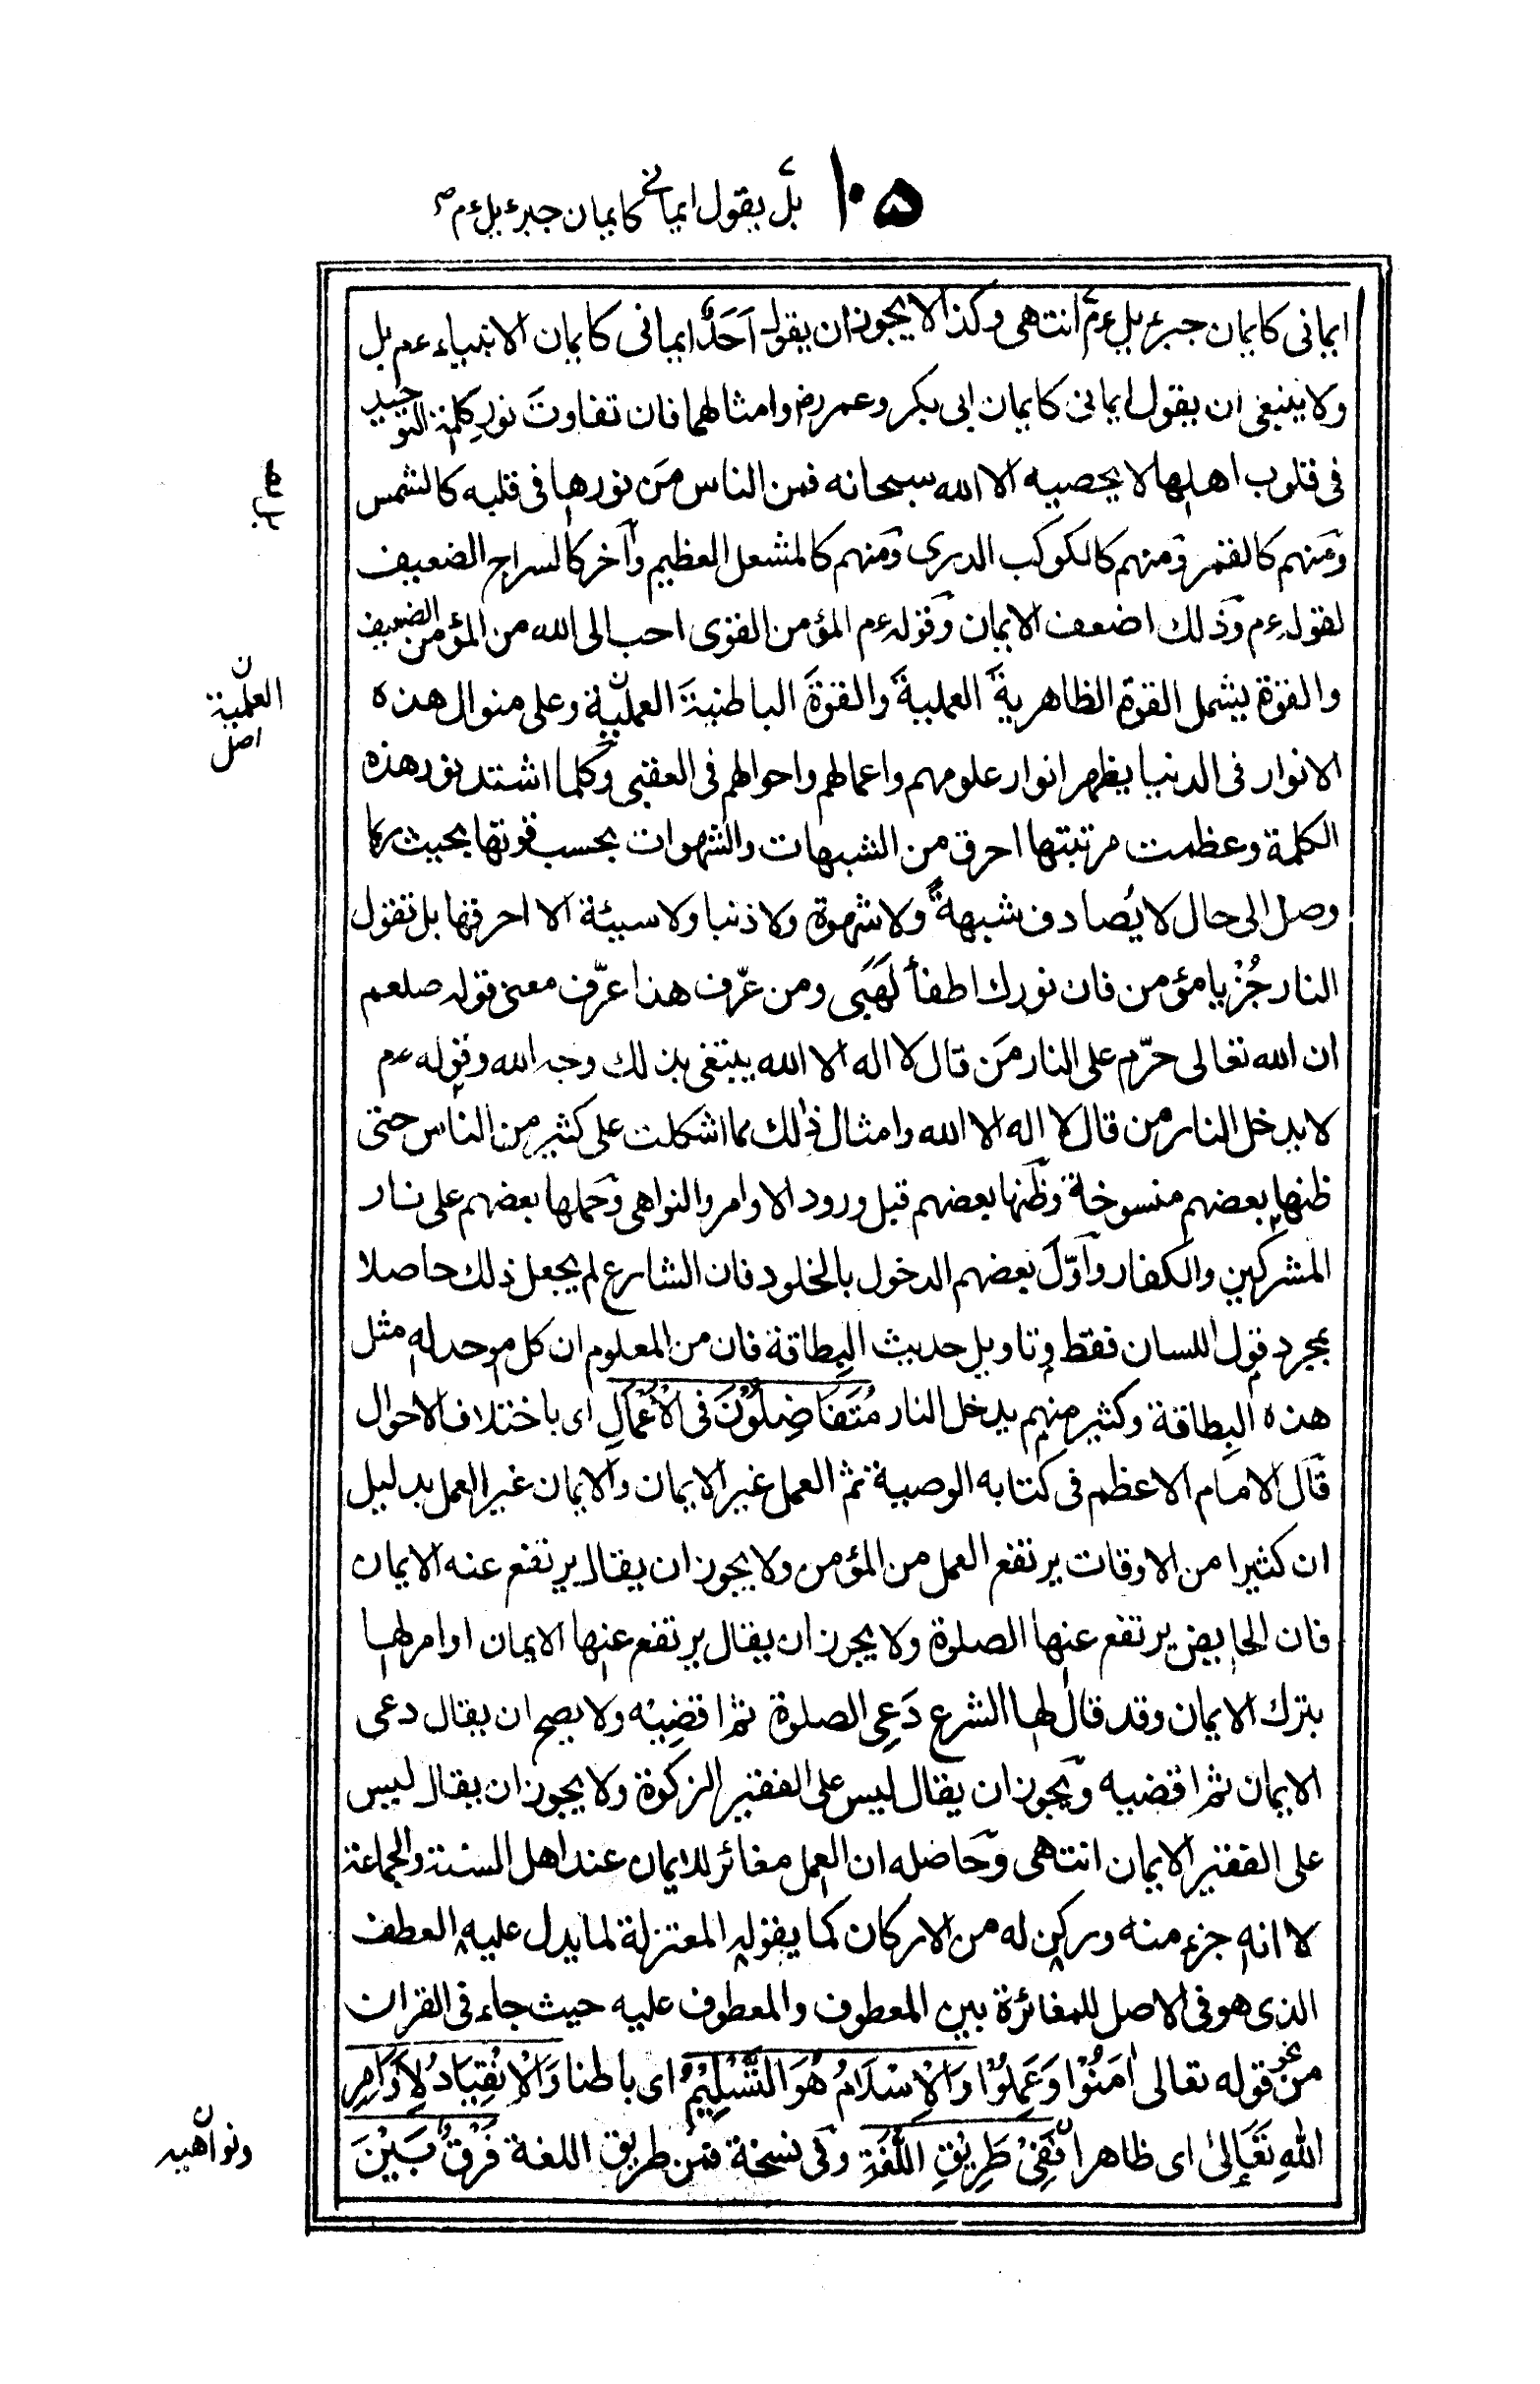 ١٠٥ بل يقول ايمانى كايمان جبرءيل ءم صح
ايمانى كايمان جبرءيل ءم انتهى وكذا لا يجوز ان يقول اَحَدٌ ايمانى كايمان الانبياء عم بل
ولا ينبغى ان يقول ايمانى كايمان ابى بكر وعمر رض وامثالهما فان تفاوتَ نورِ كلمة التوحيد
فى قلوب اهلها لا يحصيه الا الله سبحانه فمن الناس مَن نورها فى قلبه كالشمس
ومنهم كالقمر ومنهم كالكوكب الدرى ومنهم كالمشعل العظيم وآخر كالسراج الضعيف
لقوله ءم وذلك اضعف الايمان وقوله ءم المؤمن القوى احب الى الله من المؤمن الضعيف
والقوة يشمل القوة الظاهرية العملية والقوةَ الباطنيةَ العملية وعلى منوال هذه
العلمية
اصل
الانوار فى الدنيا يظهر انوار علومهم واعمالهم واحوالهم فى العقبى وكلما اشتد نور هذه
الكلمة وعظمت مرتبتها احرق من الشبهات والشهوات بحسب قوتها بحيث ربما
وصل الى حال لا يُصادف شبهةً ولا شهوة ولا ذنبا ولا سيئة الا احرقها بل تقول
النار جُزْ يا مؤمن فان نورك اطفأ لَهَبَى ومن عرّف هذا عرّف معنى قوله صلعم
ان الله تعالى حرّم على النار مَن قال لا اله الا الله يبتغى بذلك وجه الله وقوله عم
لا يدخل النار من قال لا اله الا الله وامثال ذلك مما اشكلت على كثير من الناس حتى
ظنها بعضهم منسوخة وظنها بعضهم قبل ورود الاوامر والنواهى وحملها بعضهم على نار
المشركين والكفار وأوّلَ بعضهم الدخول بالخلود فان الشارع لم يجعل ذلك حاصلا
بمجرد قول اللسان فقط وتاويل حديث البِطاقة فان من المعلوم ان كل موحد له مثل
هذه البِطاقة وكثير منهم يدخل النار مُتَفَاضِلُوْنَ فى الْاَعْمَالِ اى باختلاف الاحوال
قال الامام الاعظم فى كتابه الوصية ثم العمل غير الايمان والايمان غير العمل بدليل
ان كثيرا من الاوقات يرتفع العمل من المؤمن ولا يجوز ان يقال يرتفع عنه الايمان
فان الحايض يرتفع عنها الصلوة ولا يجوز ان يقال يرتفع عنها الايمان او امر لها
بترك الايمان وقد قال لها الشرع دَعِى الصلوة ثم اقضِيْه ولا يصح ان يقال دعى
الايمان ثم اقضيه ويجوز ان يقال ليس على الفقير الزكوة ولا يجوز ان يقال ليس
على الفقير الايمان انتهى وحاصله ان العمل مغائر للايمان عند اهل السنة والجماعة
لا انه جزء منه وركن له من الاركان كما يقوله المعتزلة لما يدل عليه العطف
الذى هو فى الاصل للمغائرة بين المعطوف والمعطوف عليه حيث جاء فى القران
من نحو قوله تعالى اٰمَنُوْا وَعَمِلُوْا وَالْاِسْلَامُ هُوَ التَّسْلِيْمُ اى باطنا وَالْاِنْقِيَادُ لِاَوَامِرِ
اللهِ تَعَالٰى اى ظاهرا فَفِىْ طَرِيْقِ اللُّغَةِ وفى نسخة فمن طريق اللغة فَرْقٌ بَيْنَ
ونواهيه